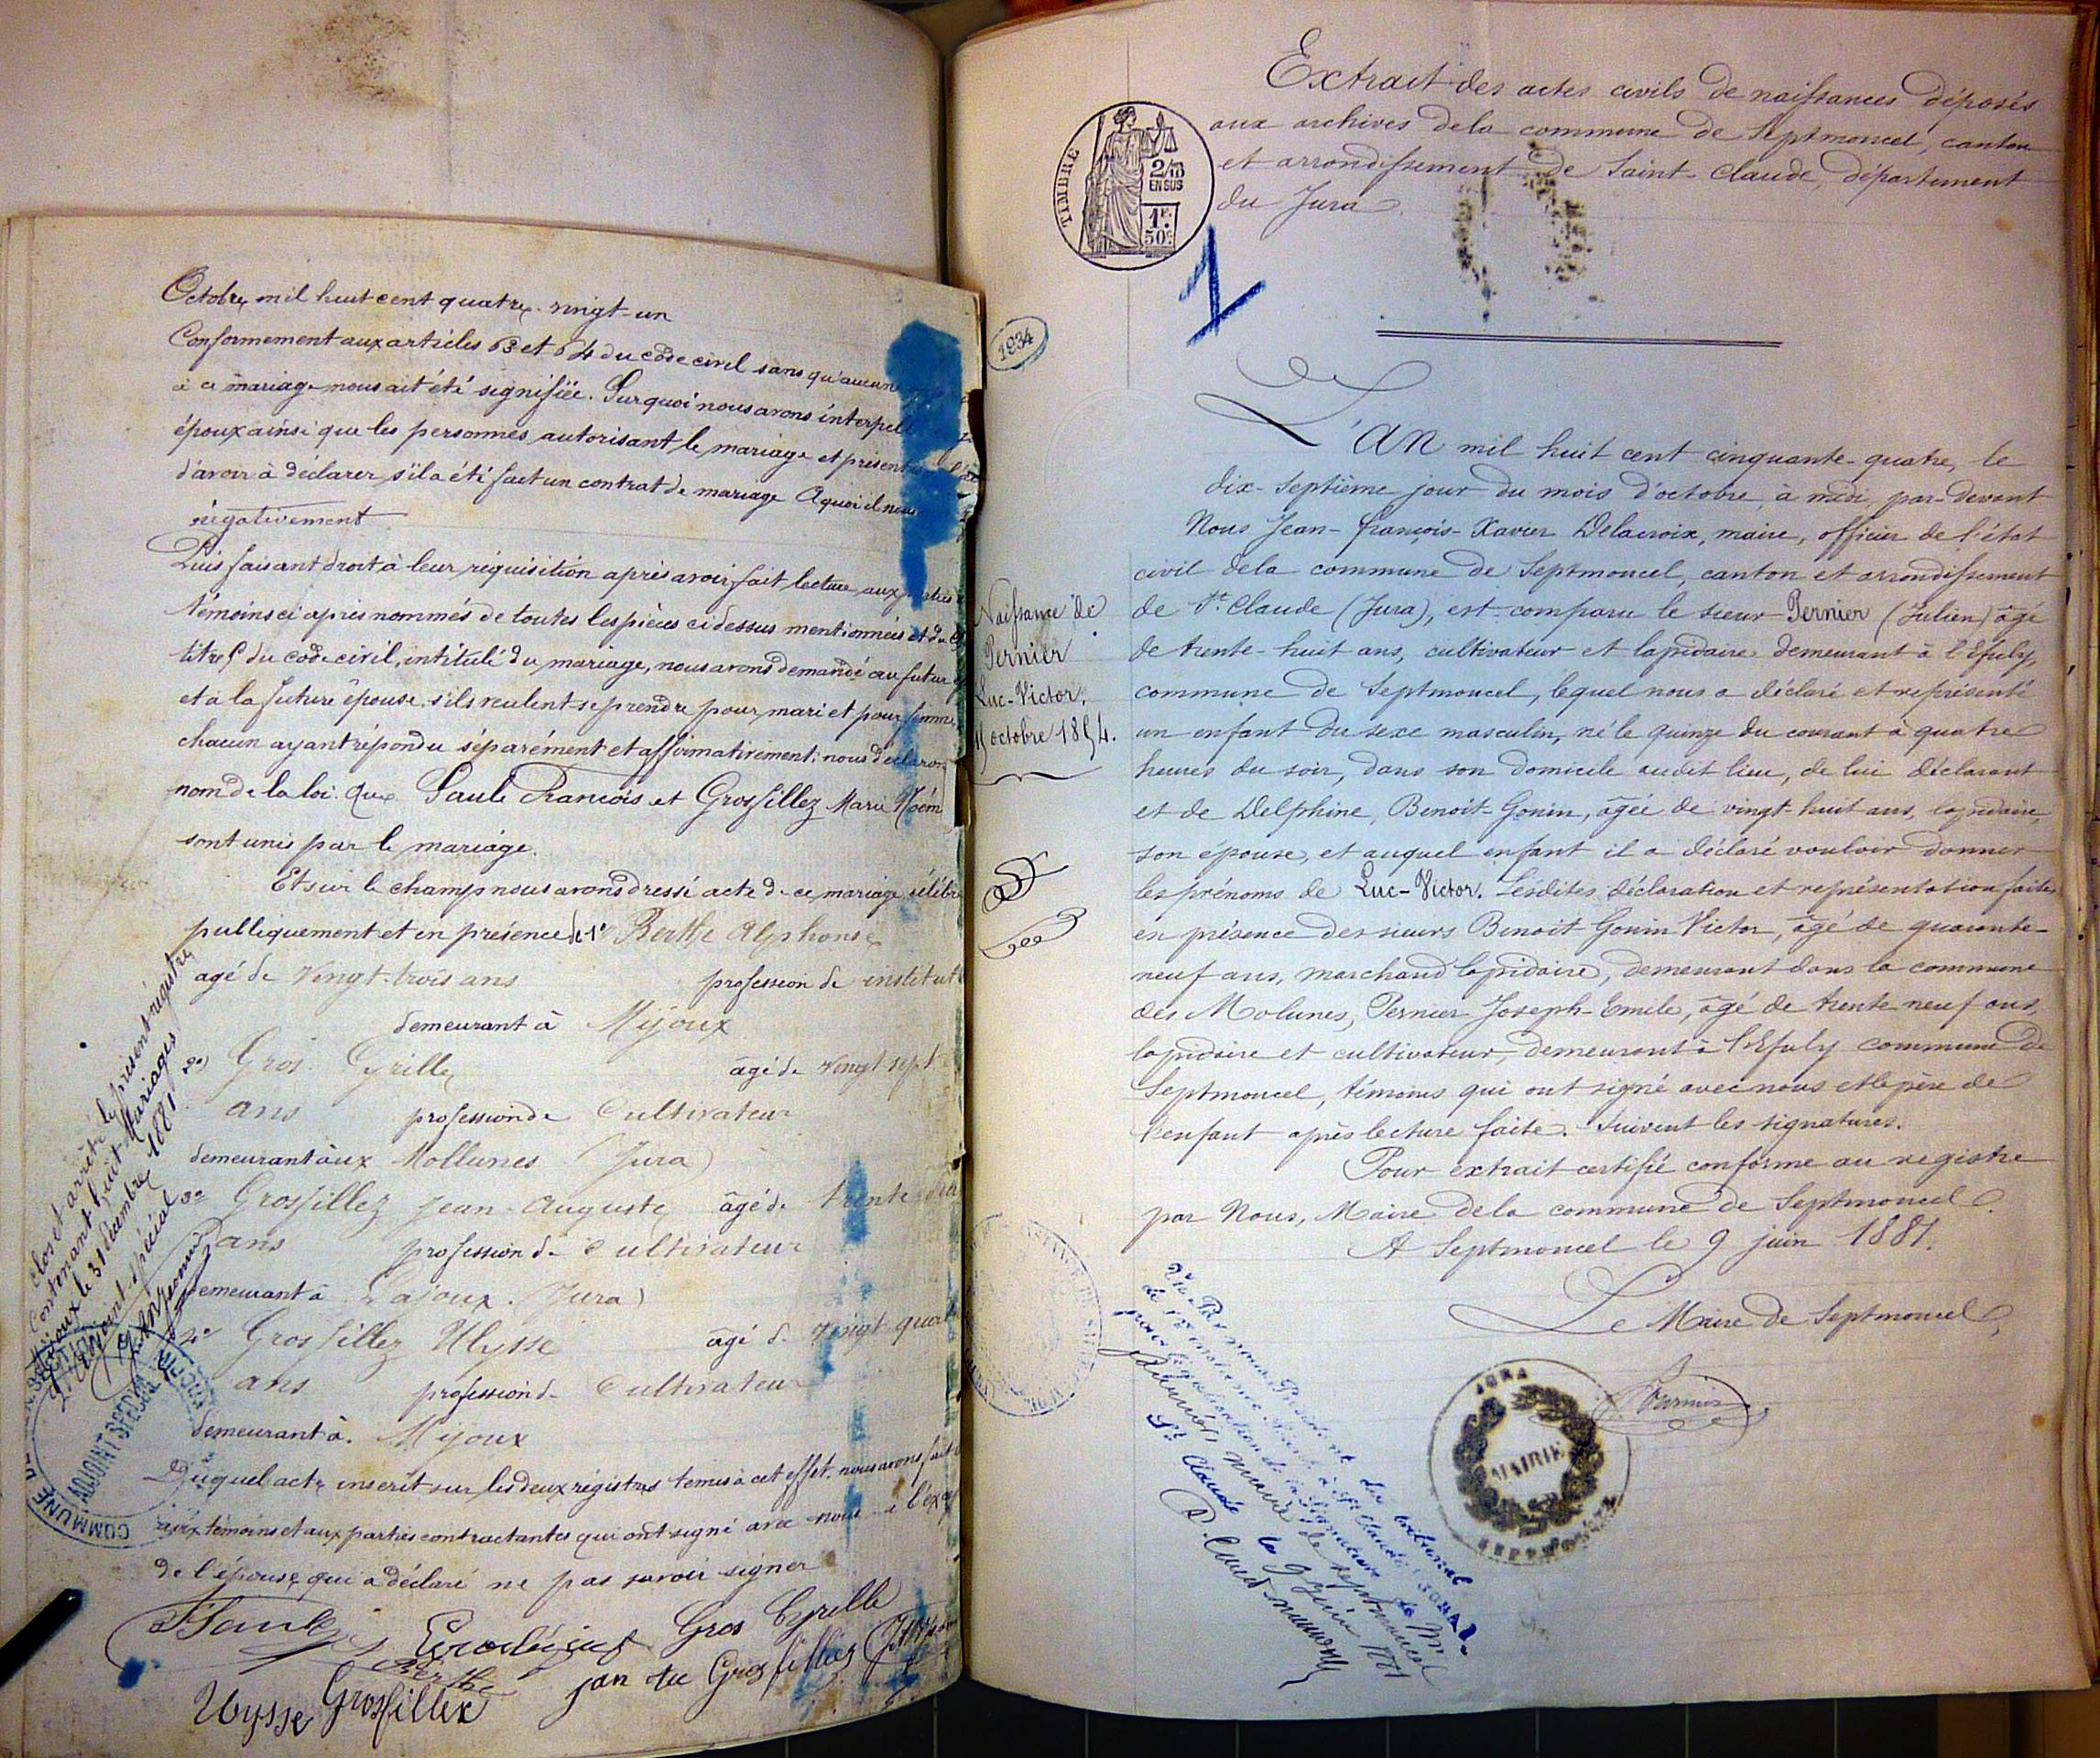 Octobre mil huit cent quatre-vingt-un
Conformement aux articles 63 et 64 du code civil sans qu'aucune
à ce mariage nous ait été signifiée. Surquoi nous avons interpell
époux ainsi que les personnes autorisant le mariage et présent
d'avoir à déclarer s'il a été fait un contrat de mariage A quoi il nous
négativement
Puis faisant droit à leur réquisition après avoir fait lecture aux parties
témoins ci après nommés de toutes les pièces ci dessus mentionnées et du
titre 5 du code civil, intitulé du mariage, nous avons demandé au futur
et à la future épouse s'ils veulent se prendre pour mari et pour femme,
chacun ayant répondu séparément et affirmativement, nous déclarons
nom de la loi que Paule François et Grosfillez Marie Noém
sont unis par le mariage.
Et sur le champ nous avons dressé acte de ce mariage célébré
publiquement et en présence de 1º Berthe Alphonse
agé de Vingt-trois ans profession de institut
demeurant à Mijoux
2º) Gros Cyrille âgé de vingt sept
ans profession de Cultivateur
demeurant aux Mollunes (Jura)
3º Grosfillez Jean-Auguste âgé de trente
ans profession de Cultivateur
demeurant à Lajoux (Jura)
4º Grosfillez Ulysse âgé de vingt quat
ans profession de Cultivateur
demeurant à Mijoux
Duquel acte inscrit sur les deux régistres tenus à cet effet, nous avons fait
aux témoins et aux parties contractantes qui ont signé avec nous à l'ex
de l'épouse qui a déclaré ne pas savoir signer
Gros Cyrille
Berthe
Ulysse Grosfillex
Clos et arrêté le présent régistre
Contenant huit Mariages
Mijoux le 31 Décembre 1881
L'adjoint spécial
COMMUNE DE
ADJOINT SPÉCIAL
Extrait des actes civils de naissances déposés
aux archives de la commune de Septmoncel, canton
et arrondissement de Saint-Claude, département
du Jura.
TIMBRE
2/10
EN SUS
1F.
50c.
1
1834
L'AN mil huit cent cinquante-quatre, le
dix-septième jour du mois d'octobre, à midi, par-devant
Nous Jean-françois-Xavier Delacroix, maire, officier de l'état
civil de la commune de Septmoncel, canton et arrondissement
de St. Claude (Jura), est comparu le sieur Pernier (Julien) âgé
de trente-huit ans, cultivateur et lapidaire demeurant à l'Efuly,
commune de Septmoncel, lequel nous a déclaré et représenté
un enfant du sexe masculin, né le quinze du courant à quatre
heures du soir, dans son domicile audit lieu, de lui déclarant
et de Delphine, Benoit-Gonin, âgée de vingt-huit ans, lapidaire,
son épouse, et auquel enfant il a déclaré vouloir donner
les prénoms de Luc-Victor. Lesdites déclaration et représentation faites
en présence des sieurs Benoit Gonin Victor, âgé de quarante-
neuf ans, marchand lapidaire, demeurant dans la commune
des Molunes, Pernier Joseph-Emile, âgé de trente neuf ans,
lapidaire et cultivateur, demeurant à l'Efuly commune de
Septmoncel, témoins qui ont signé avec nous et le père de
l'enfant après lecture faite. Suivent les signatures.
Pour extrait certifié conforme au registre
par Nous, Maire de la commune de Septmoncel.
A Septmoncel le 9 juin 1881.
Le Maire de Septmoncel,
Naissance de
Pernier
Luc-Victor.
octobre 1854.
JURA
MAIRIE
SEPTMONCEL
Vu Par nous Président du tribunal
de 1re instance séant à St Claude (JURA)
pour légalisation de la signature de M
maire de Septmoncel
St Claude le 9 Juin 1881